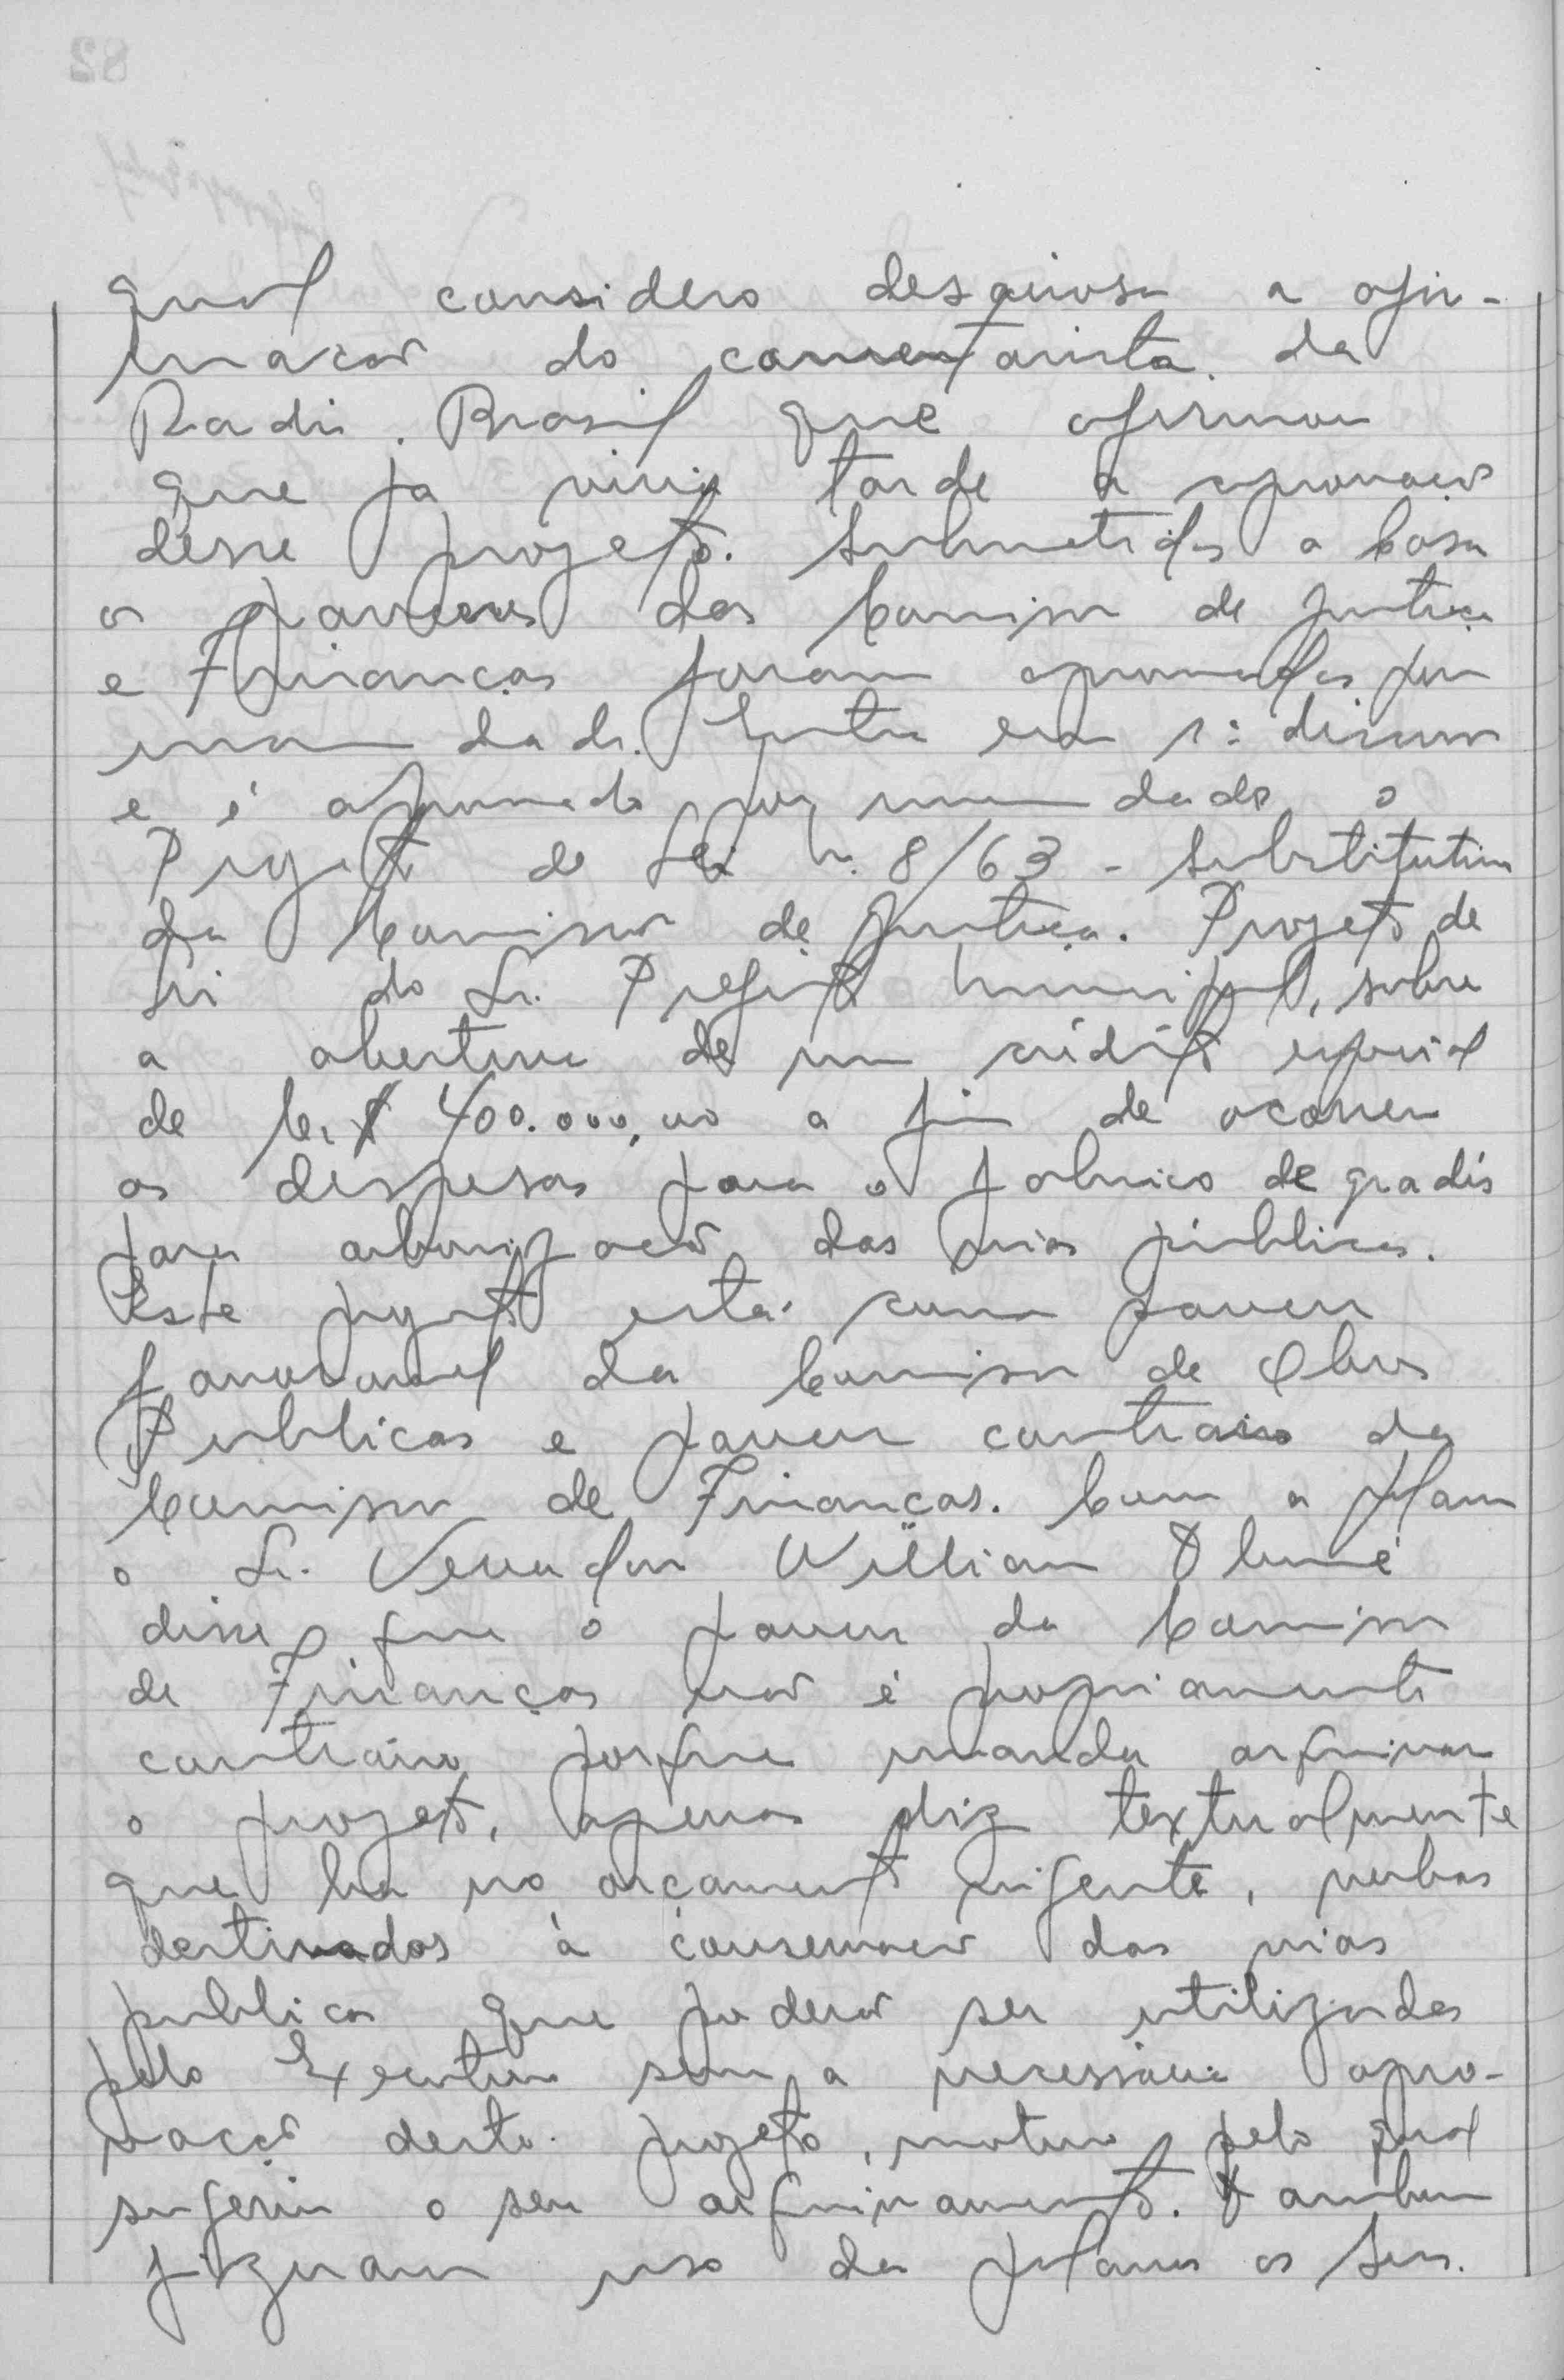 qual considero desairosa a afir-
mação do comentarista da
Radio Brasil que afirmou
que ja viria tarde a aprovação
desse projeto. Submetidos a Casa
os pareceres das Comissão de Justiça
e Finanças foram aprovados por
unanimidade. Entra em 1ª discussão
e é aprovado por unanimidade o
Projeto de Lei n. 8/63 - Substitutivo
da Comissão de Justiça. Projeto de
lei do Sr. Prefeito Municipal, sobre
a abertura de um crédito especial
de Cr$ 400.000,00 a fim de ocorrer
as despesas para o fabrico de gradis
para arborização das vias públicas.
Este projeto está com parecer
favoravel da Comissão de Obras
Publicas e parecer contrario da
Comissão de Finanças. Com a palavra
o Sr. Vereador Willian
disse que o parecer da Comissão
de Finanças não é propriamente
contrário, porque manda arquivar
o projeto, apenas diz textualmente
que ha no orçamento vigente, verbas
destinadas à conservação das vias
publicas que poderão ser utilizadas
pelo Executivo sem a necessária apro-
vação deste projeto, motivo pelo qual
sugeriu o seu arquivamento. Tambem
fizeram uso da palavra os Srs.